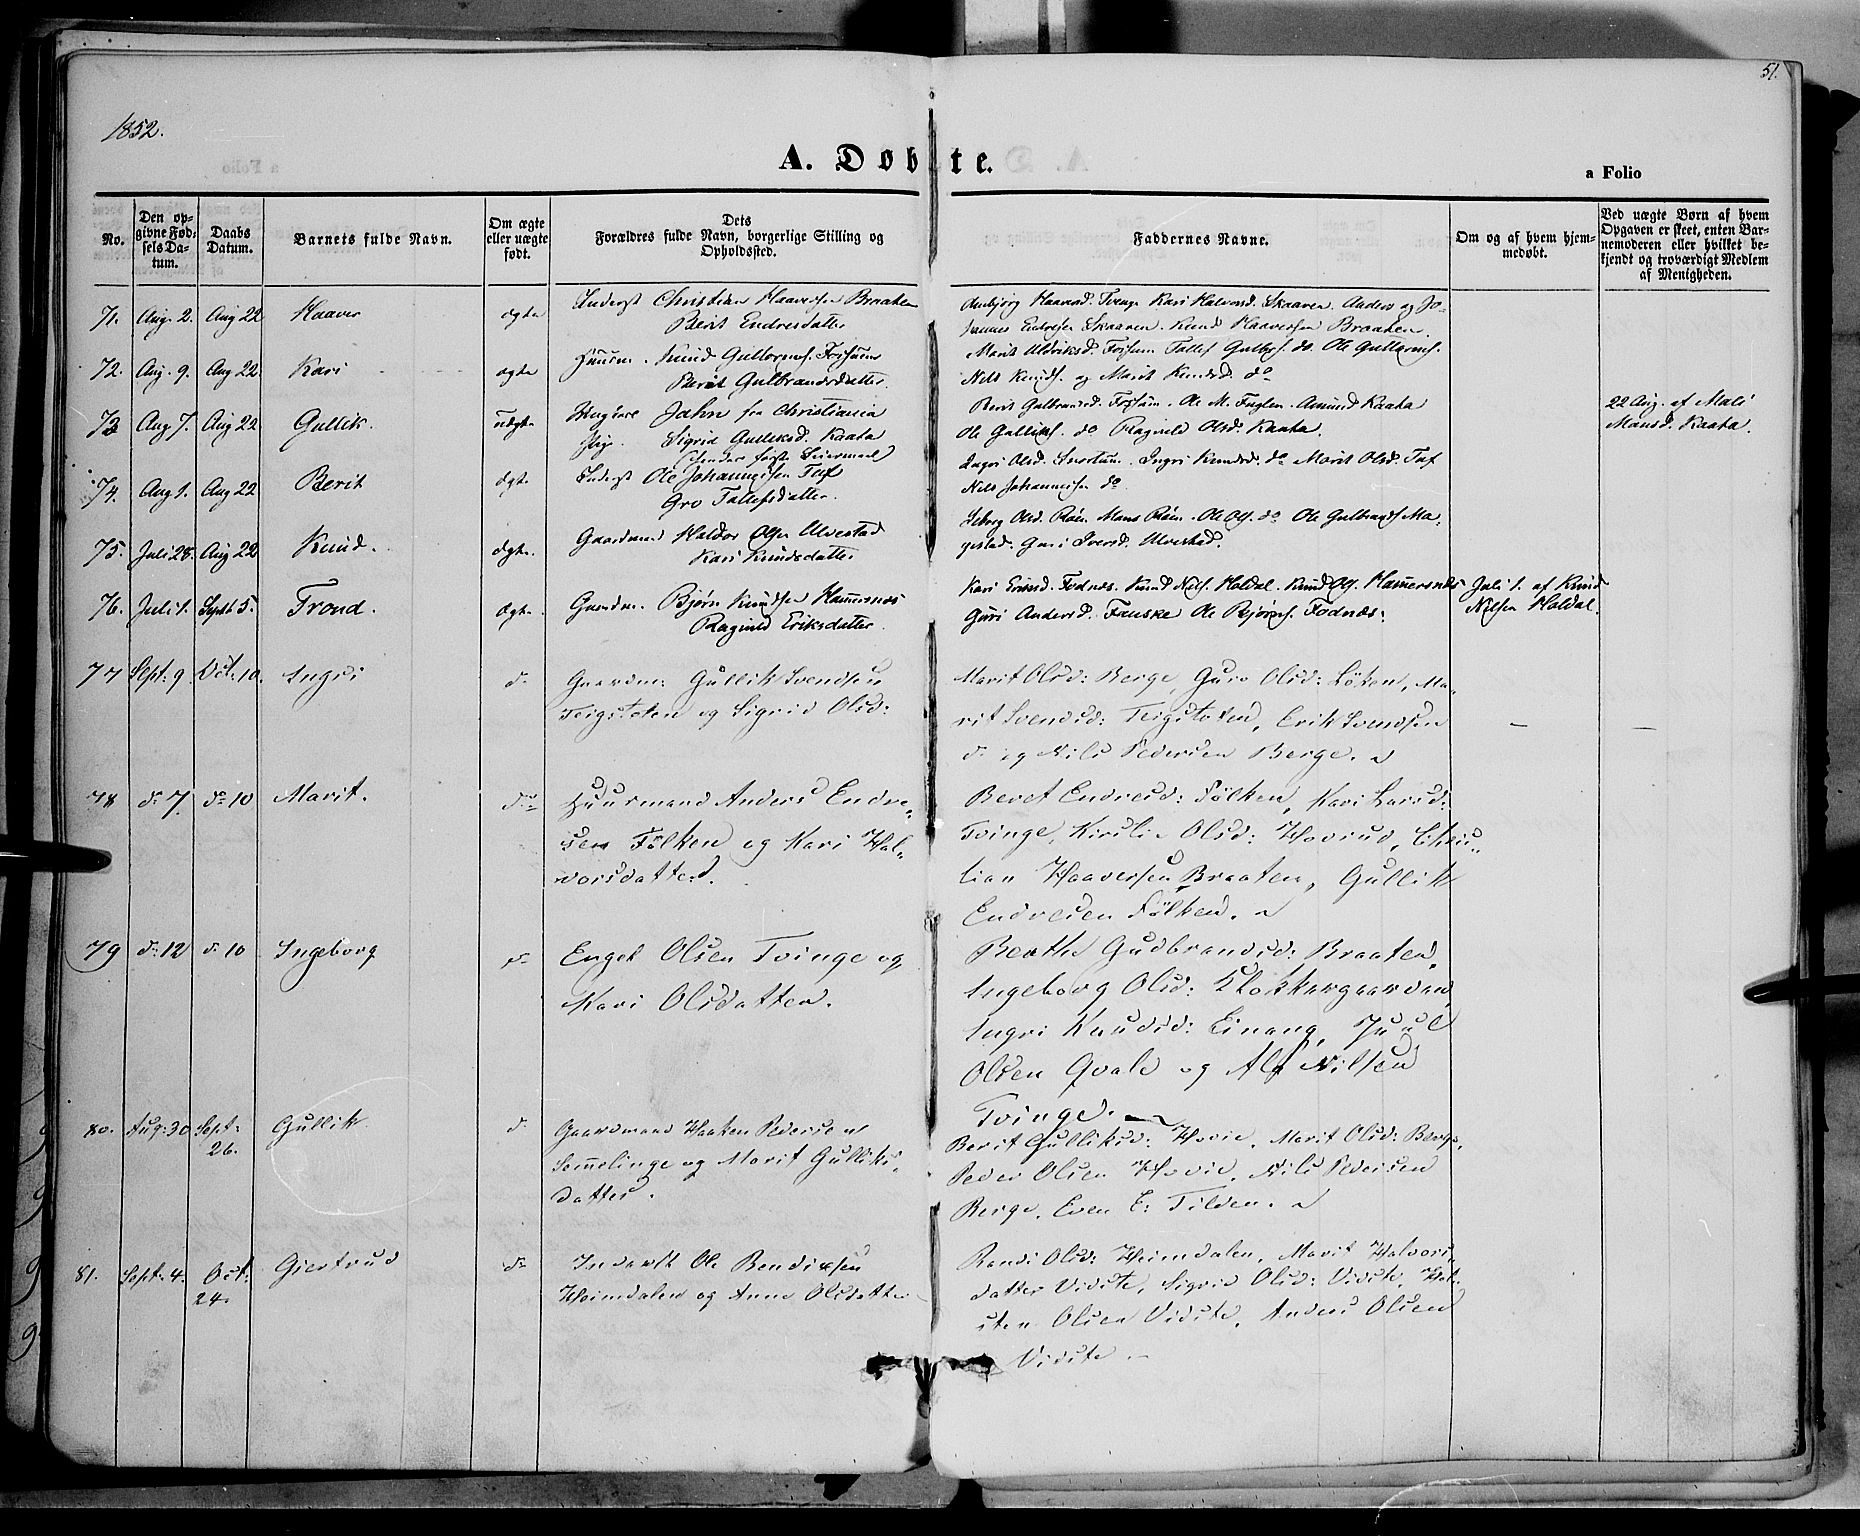 51.
1852.
A. Døbte.
a Folio
No.
Den op-
givne Fød-
sels Da-
tum.
Daabs
Datum.
Barnets fulde Navn.
Om ægte
eller uægte
født.
Dets
Forældres fulde Navn, borgerlige Stilling og
Opholdssted.
Faddernes Navne.
Om og af hvem hjem-
medøbt.
Ved uægte Børn af hvem
Opgaven er skeet, enten Bar-
nemoderen eller hvilket be-
kjendt og troværdigt Medlem
af Menigheden.
71. Aug. 2. Aug 22 Haaver ægte Inderst Christian Haaversen Braaten
Berit Endresdatter
Haaversd. Tvenge Kari Halvorsd. Skaaren. Anders og Jo-
hannes Endresen Skaaren. Knud Haaversen Braaten.
72. Aug. 9. Aug 22 Kari ægte Huusm. Knud Gulbrands. Fossum
Marit Gulbrandsdatter
Marit Uldriksd. Fossum Tollef Gulbs. do. Ole Gulbrands.
Nils Knuds. og Marit Knudsd. do
73 Aug 7. Aug 22 Gullik. uægte Jahn fra Christiania
Pige. Sigrid Gulliksd. Kaata
Hendes første Leiermaal
Berit Gulbrandsd. Fossum. Ole M. Fuglen. Amund Kaata
Ole Galliks. do Ragnild Olsd. Kaata.
22 Aug. af Mali
Mansd. Kaata.
74. Aug 1. Aug 22 Berit ægt. Inderst Ole Johannessen Tuf
Gro Tollefsdatter.
Ingri Olsd. Ingri Knudsd. do Marit Olsd. Tuf
Nils Johannesen do.
75. Juli 28. Aug 22 Knud. ægt. Gaardmd Haldor Olsen Ulvestad
Kari Knudsdatter
Olsd. Røen Mans Røen. Ole Ols. do Ole Gulbrands. Ma-
gestad. Guri Iversd. Ulvestad.
76. Juli 1. Sept 5. Trond. ægt. Gaardm. Bjørn Knudsen Hamersnæs
Ragnild Eriksdatter.
Kari Eriksd. Fodnæs. Knud Nils. Haldal. Knud Ols. Hamersnæs
Guri Andersd. Fauske Ole Bjørns. Fodnæs.
Juli 1. af Knud
Nilsen Haldal.
77 Sept: 9 Oct: 10. Ingri d. Gaardm: Gullik Svendsen
Teigstolen og Sigrid Olsd:
Marit Olsd: Berge, Guro Olsd: Løken, Ma-
rit Svendsd: Teigstolen, Erik Svendsen
do og Nils Pedersen Berge.
78 do 7. do 10 Marit. do Huusmand Anders Endre-
sen Følken og Kari Hal-
vorsdatter.
Beret Endresd: Følken, Kari Larsd:
Tvinge, Kirsti Olsd: Hovrud, Chris-
tian Haaversen Braaten, Gullik
Endresen Følken.
79 do 12 do 10 Ingeborg do Engel Olsen Tvinge og
Kari Olsdatter.
Berthe Gudbrandsd: Braaten,
Ingeborg Olsd: Klokkergaarden,
Ingri Knudsd: Einang, Juul
Olsen Qvale og Alf Nilsen
Tvinge.
80. Aug: 30 Sept:
26. Gullik d. Gaardmand Haaken Pedersen
Semelinge og Marit Gulliks-
datter.
Berit Gulliksd: Hovie, Marit Olsd: Berge,
Peder Olsen Hovie, Nils Pedersen
Berge, Even E: Tilden.
81. Sept: 4. Oct:
24. Giertrud do Inderst Ole Bendixsen
Heimdalen og Anne Olsdatter
Randi Olsd: Heimdalen, Marit Halvors-
datter Vidste, Sigrid Olsd: Vidste, Hal-
sten Olsen Vidste, Anders Olsen
Vidste.